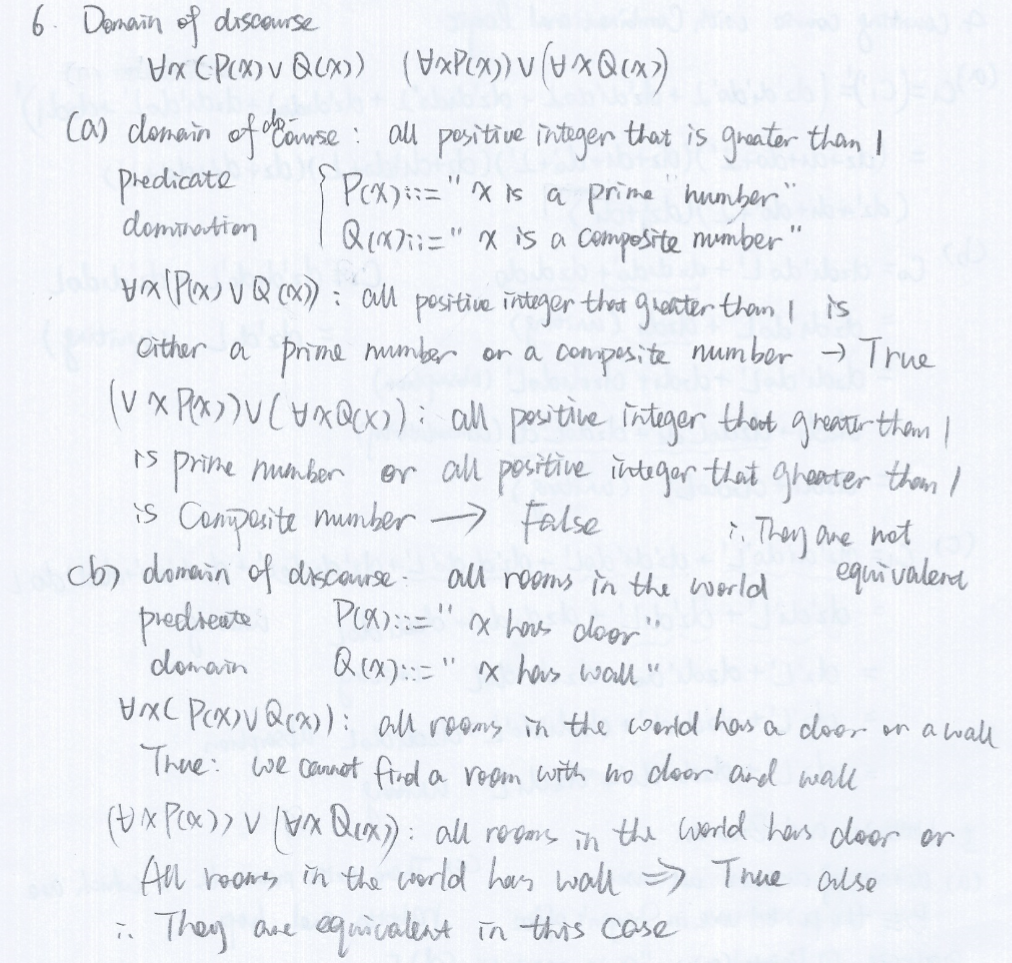 6. Domain of discourse
∀x(P(x) ∨ Q(x)) (∀xP(x)) ∨ (∀xQ(x))
(a) domain of discourse : all positive integer that is greater than 1
predicate { P(x)::= "x is a prime "number"
domination Q(x)::= "x is a composite number"
∀x(P(x) ∨ Q(x)) : all positive integer that greater than 1 is
either a prime number or a composite number → True
(∀xP(x)) ∨ (∀xQ(x)) : all positive integer that greater than 1
is prime number or all positive integer that greater than 1
is composite number → False ∴ They are not
equivalent
(b) domain of discourse : all rooms in the world
predicate P(x)::= "x has door"
domain Q(x)::= "x has wall"
∀x(P(x) ∨ Q(x)) : all rooms in the world has a door or a wall
True: we cannot find a room with no door and wall
(∀xP(x)) ∨ (∀xQ(x)) : all rooms in the world has door or
All rooms in the world has wall ⇒ True also
∴ They are equivalent in this case